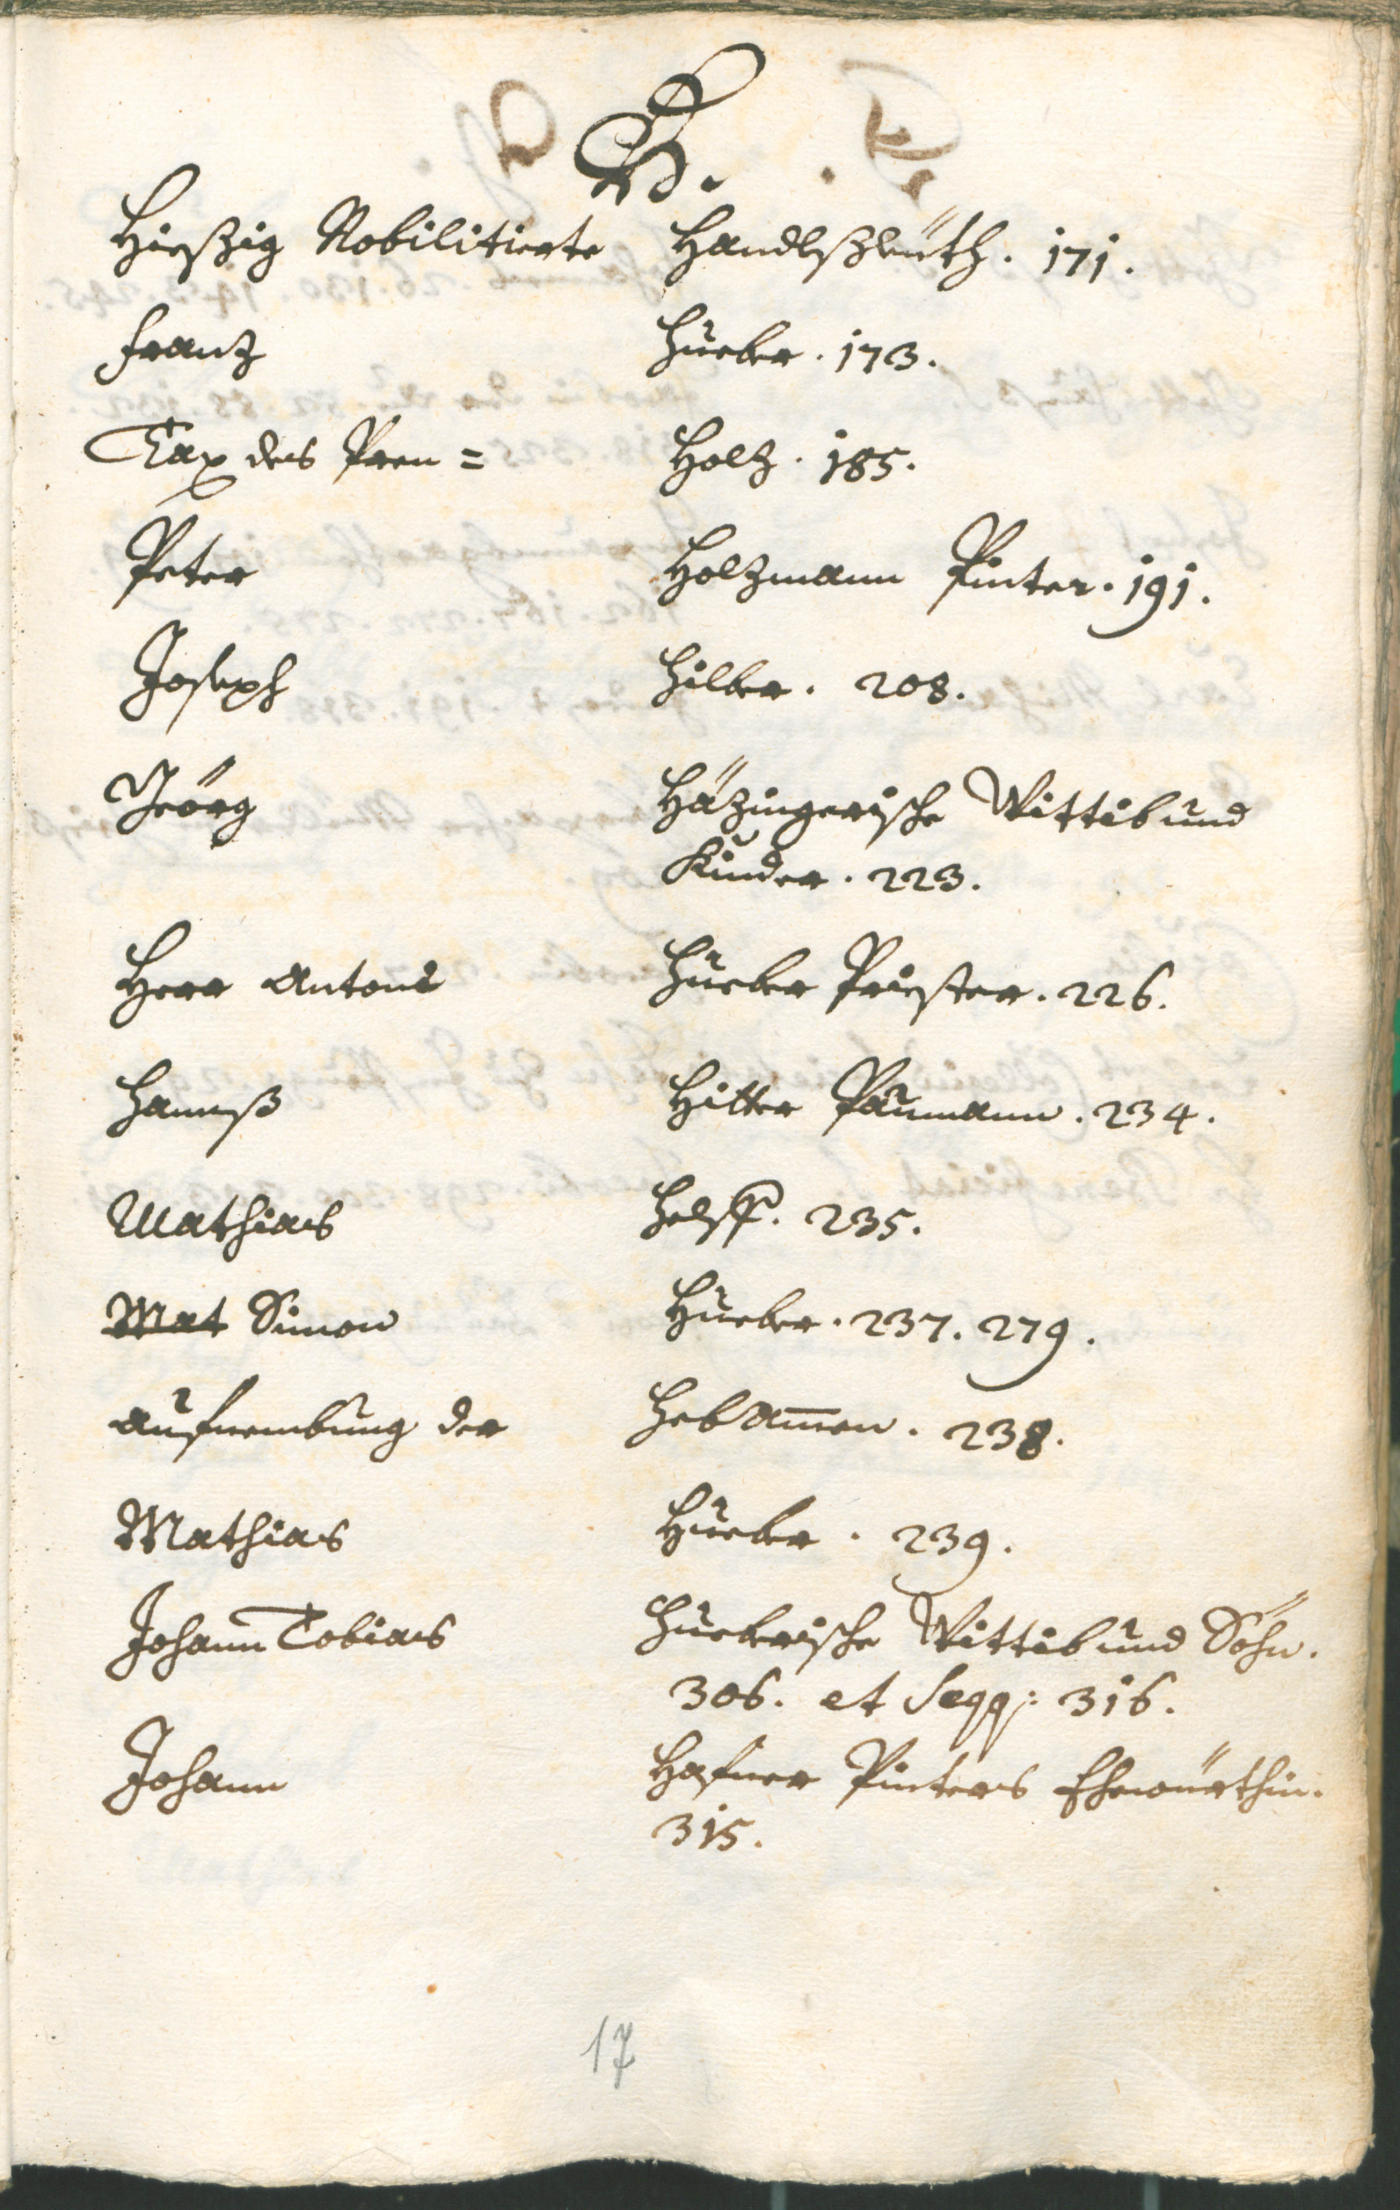 H.
Hießig Nobilitierte Handlßleüth. 171.
Franz Hueber. 173.
Tax des Pren= Holz. 185.
Peter Holzmann Pinter. 191.
Joseph Hilber. 208.
Jeörg Häzingerische Wittib und
Kinder. 223.
Herr Antoni Hueber Priester. 226.
Hannß Hitter Paumann. 234.
Mathias Helff. 235.
Mat Simon Hueber. 237. 279.
Aufnembung der Hebamen. 238.
Mathias Hueber. 239.
Johann Tobias Hueberische Wittib und Söhn.
306. et seqq: 316.
Johann Hafner Pinters Ehewürthin.
315.
17